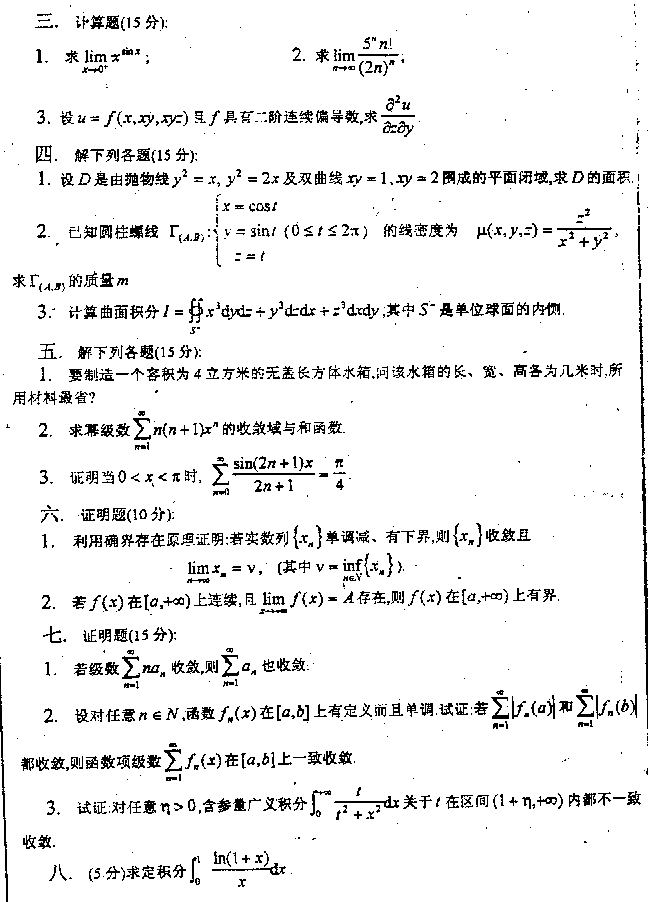 三. 计算题(15分):
1. 求 lim_{x→0⁺} x^{sin x} ;  2. 求 lim_{n→∞} 5ⁿn!/(2n)ⁿ ;
3. 设 u = f(x,xy,xyz) 且 f 具有二阶连续偏导数,求 ∂²u/∂z∂y
四. 解下列各题(15分):
1. 设 D 是由抛物线 y² = x, y² = 2x 及双曲线 xy = 1, xy = 2 围成的平面闭域,求 D 的面积.
2. 已知圆柱螺线 Γ_(A,B): { x = cos t, y = sin t, z = t (0 ≤ t ≤ 2π) 的线密度为 μ(x,y,z) = z²/(x² + y²) ,
求 Γ_(A,B) 的质量 m
3. 计算曲面积分 I = ∯_{S⁻} x³dydz + y³dzdx + z³dxdy ,其中 S⁻ 是单位球面的内侧.
五. 解下列各题(15分):
1. 要制造一个容积为 4 立方米的无盖长方体水箱,问该水箱的长、宽、高各为几米时,所
用材料最省?
2. 求幂级数 ∑_{n=1}^{∞} n(n+1)xⁿ 的收敛域与和函数.
3. 证明当 0 < x < π 时, ∑_{n=0}^{∞} sin(2n+1)x/(2n+1) = π/4 .
六. 证明题(10分):
1. 利用确界存在原理证明:若实数列 {xₙ} 单调减、有下界,则 {xₙ} 收敛且
lim_{n→∞} xₙ = v , (其中 v = inf_{n∈N} {xₙ} ).
2. 若 f(x) 在 [a,+∞) 上连续,且 lim_{x→+∞} f(x) = A 存在,则 f(x) 在 [a,+∞) 上有界.
七. 证明题(15分):
1. 若级数 ∑_{n=1}^{∞} naₙ 收敛,则 ∑_{n=1}^{∞} aₙ 也收敛.
2. 设对任意 n ∈ N ,函数 fₙ(x) 在 [a,b] 上有定义而且单调.试证:若 ∑_{n=1}^{∞} |fₙ(a)| 和 ∑_{n=1}^{∞} |fₙ(b)|
都收敛,则函数项级数 ∑_{n=1}^{∞} fₙ(x) 在 [a,b] 上一致收敛.
3. 试证:对任意 η > 0 ,含参量广义积分 ∫₀^{+∞} t/(t² + x²) dx 关于 t 在区间 (1 + η,+∞) 内都不一致
收敛.
八. (5分)求定积分 ∫₀¹ ln(1 + x)/x dx .